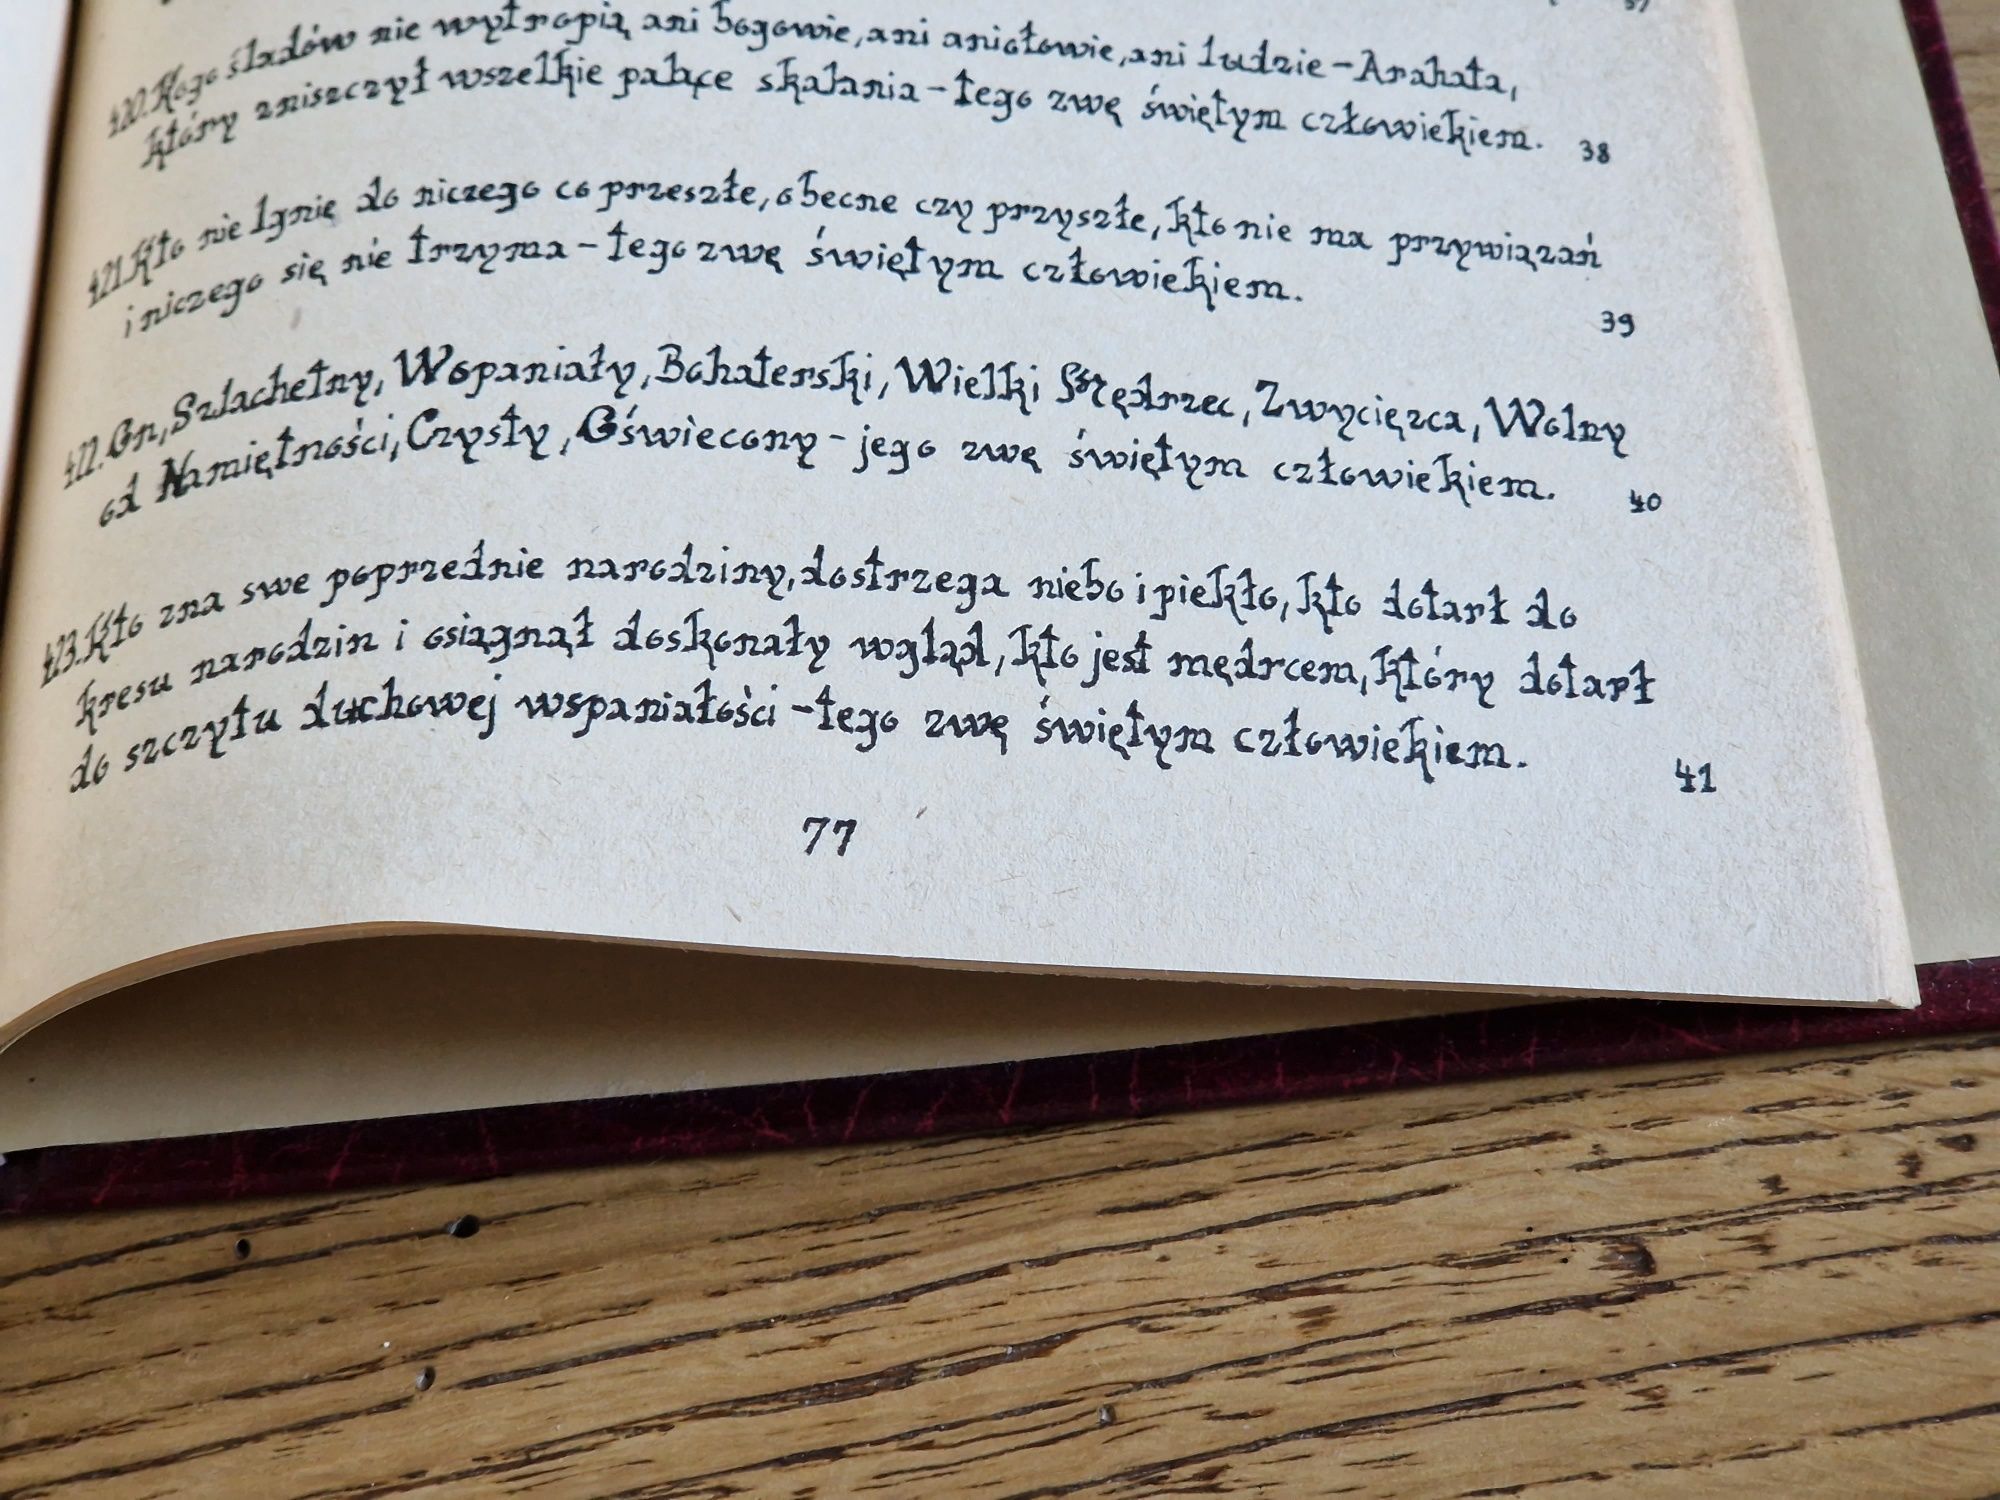 37
420. Kogo śladów nie wytropią ani bogowie, ani aniołowie, ani ludzie – Arahata,
który zniszczył wszelkie palące skalania – tego zwę świętym człowiekiem. 38
421. Kto nie lgnie do niczego co przeszłe, obecne czy przyszłe, kto nie ma przywiązań
i niczego się nie trzyma – tego zwę świętym człowiekiem.
39
422. On, Szlachetny, Wspaniały, Bohaterski, Wielki Mędrzec, Zwycięzca, Wolny
od Namiętności, Czysty, Oświecony – jego zwę świętym człowiekiem. 40
423. Kto zna swe poprzednie narodziny, dostrzega niebo i piekło, kto dotarł do
kresu narodzin i osiągnął doskonały wgląd, kto jest mędrcem, który dotarł
do szczytu duchowej wspaniałości – tego zwę świętym człowiekiem. 41
77